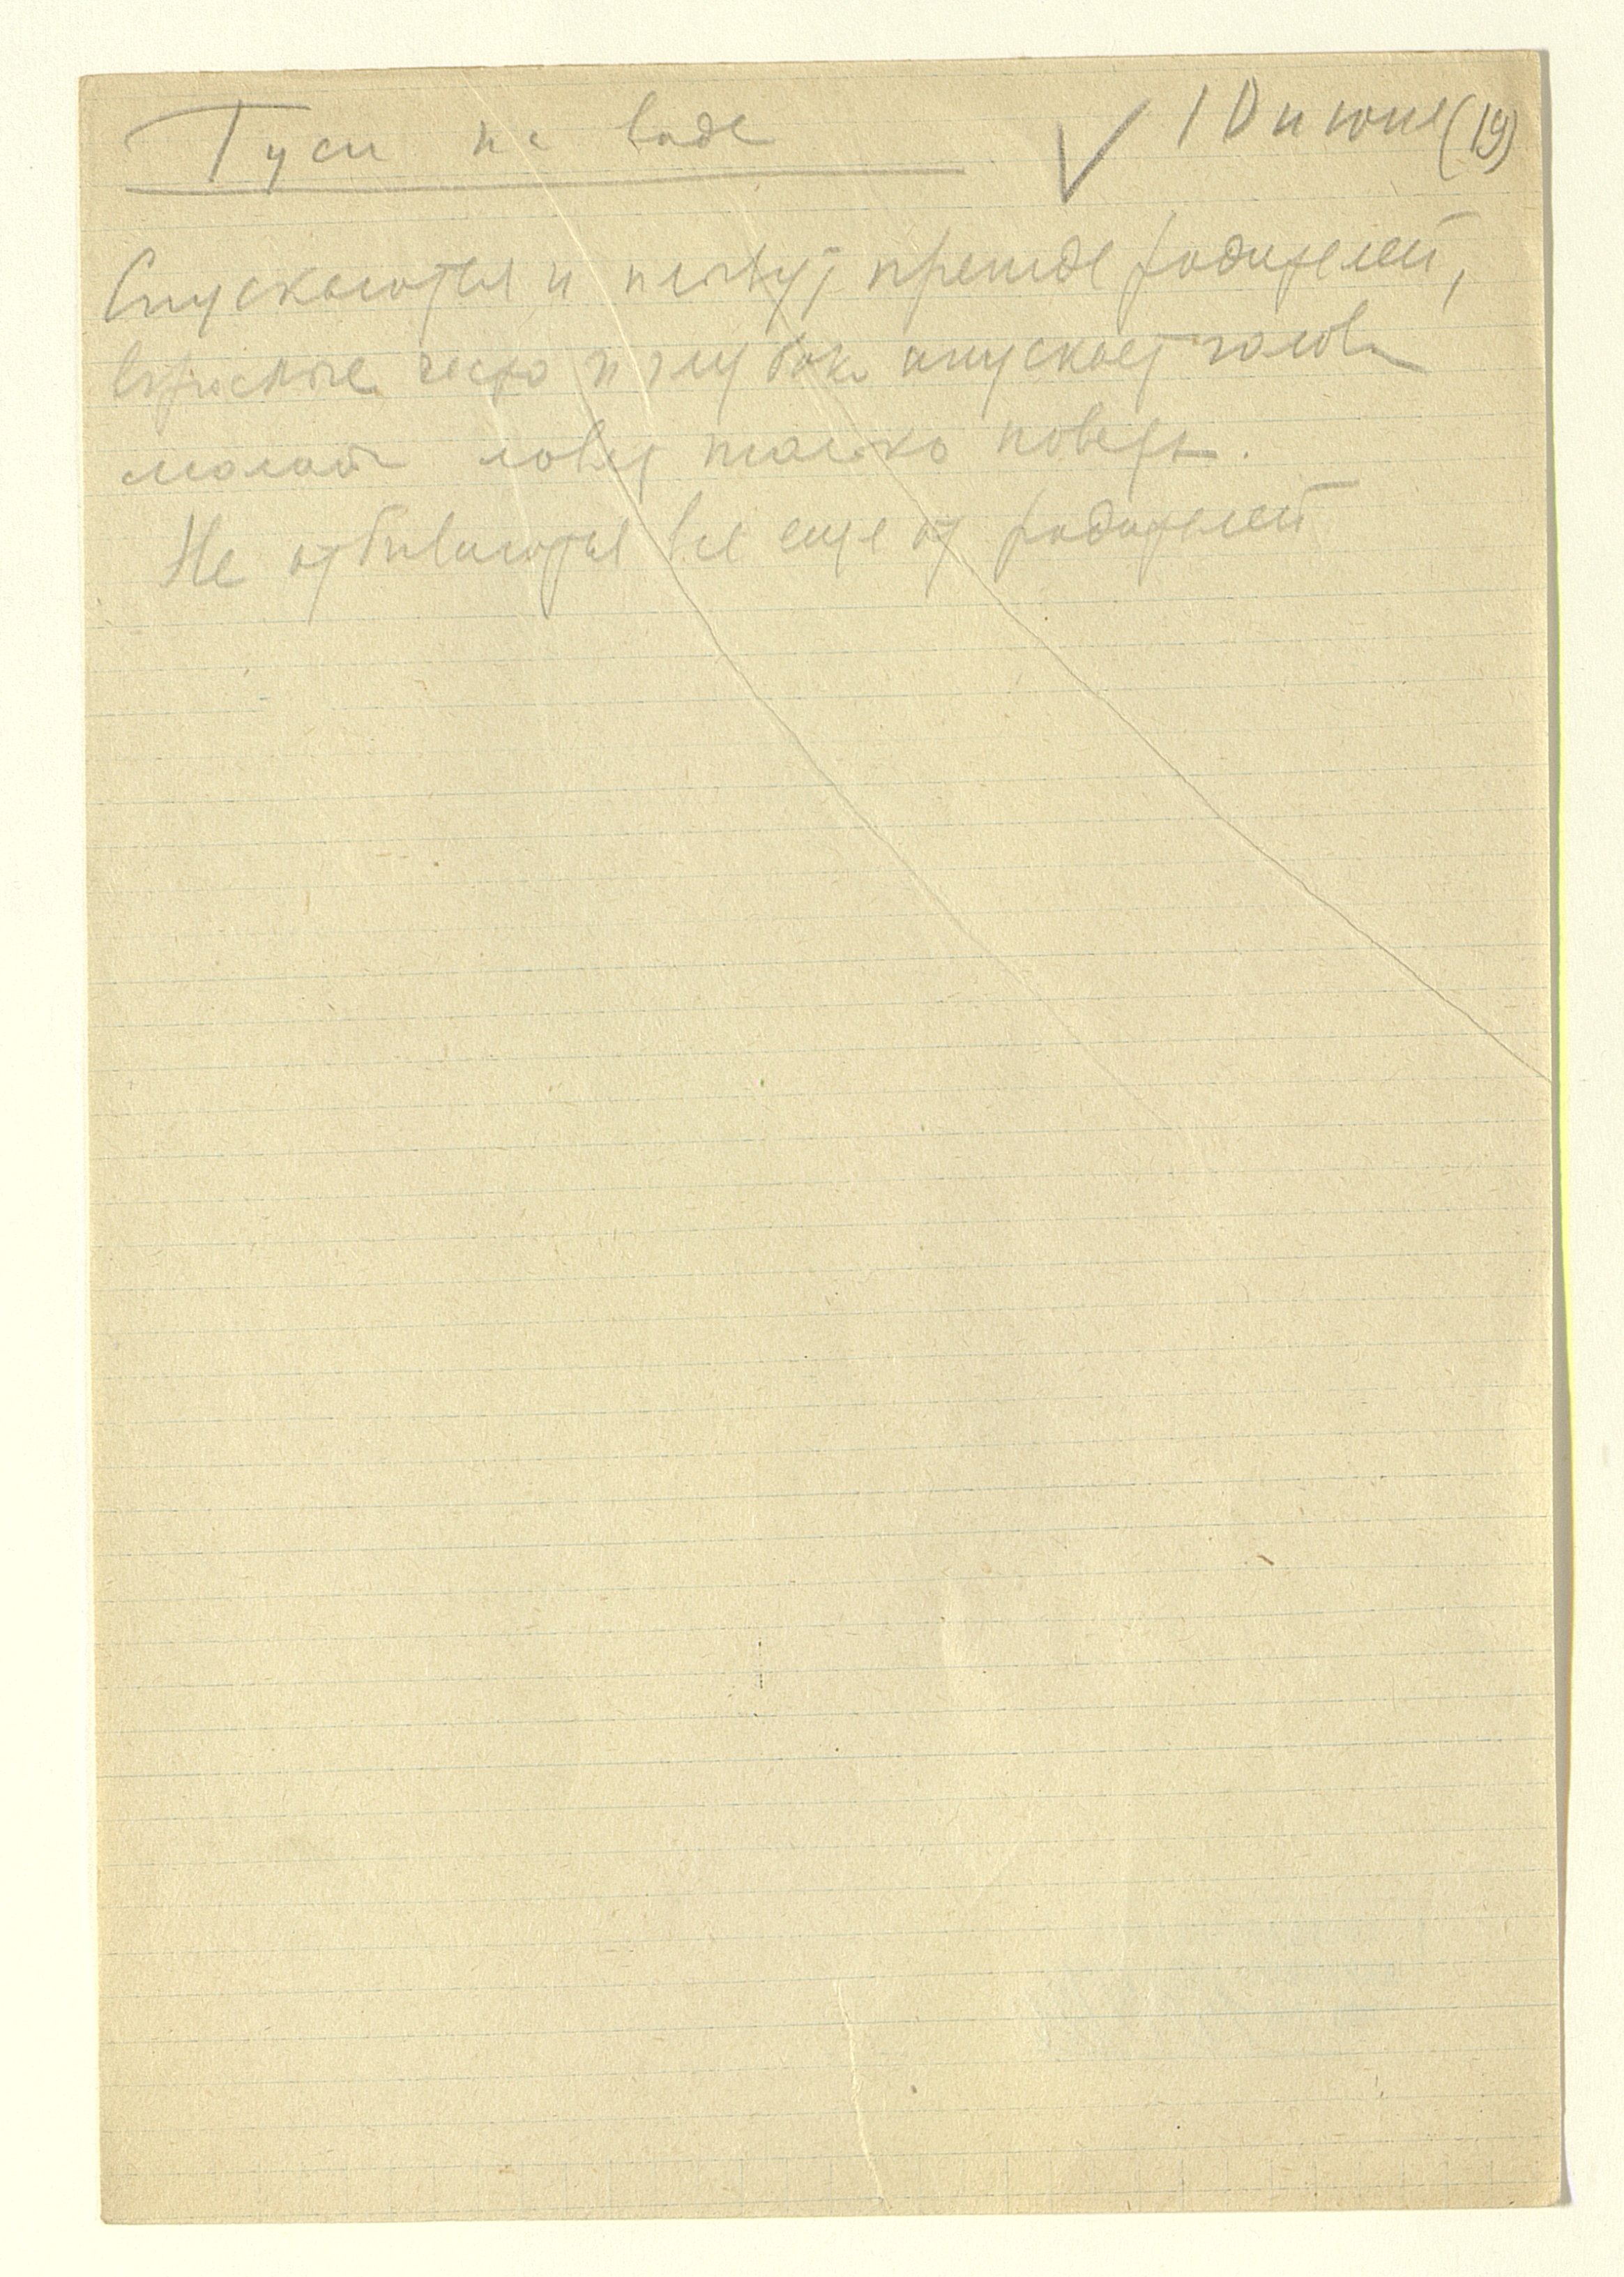 Гуси на воде ✓ 10 июня (19)
Спускаются и плывут прежде родителей,
взрослые часто и глубоко опускают голов
молодые ловят только поверх.
Не отбиваются все еще от родителей